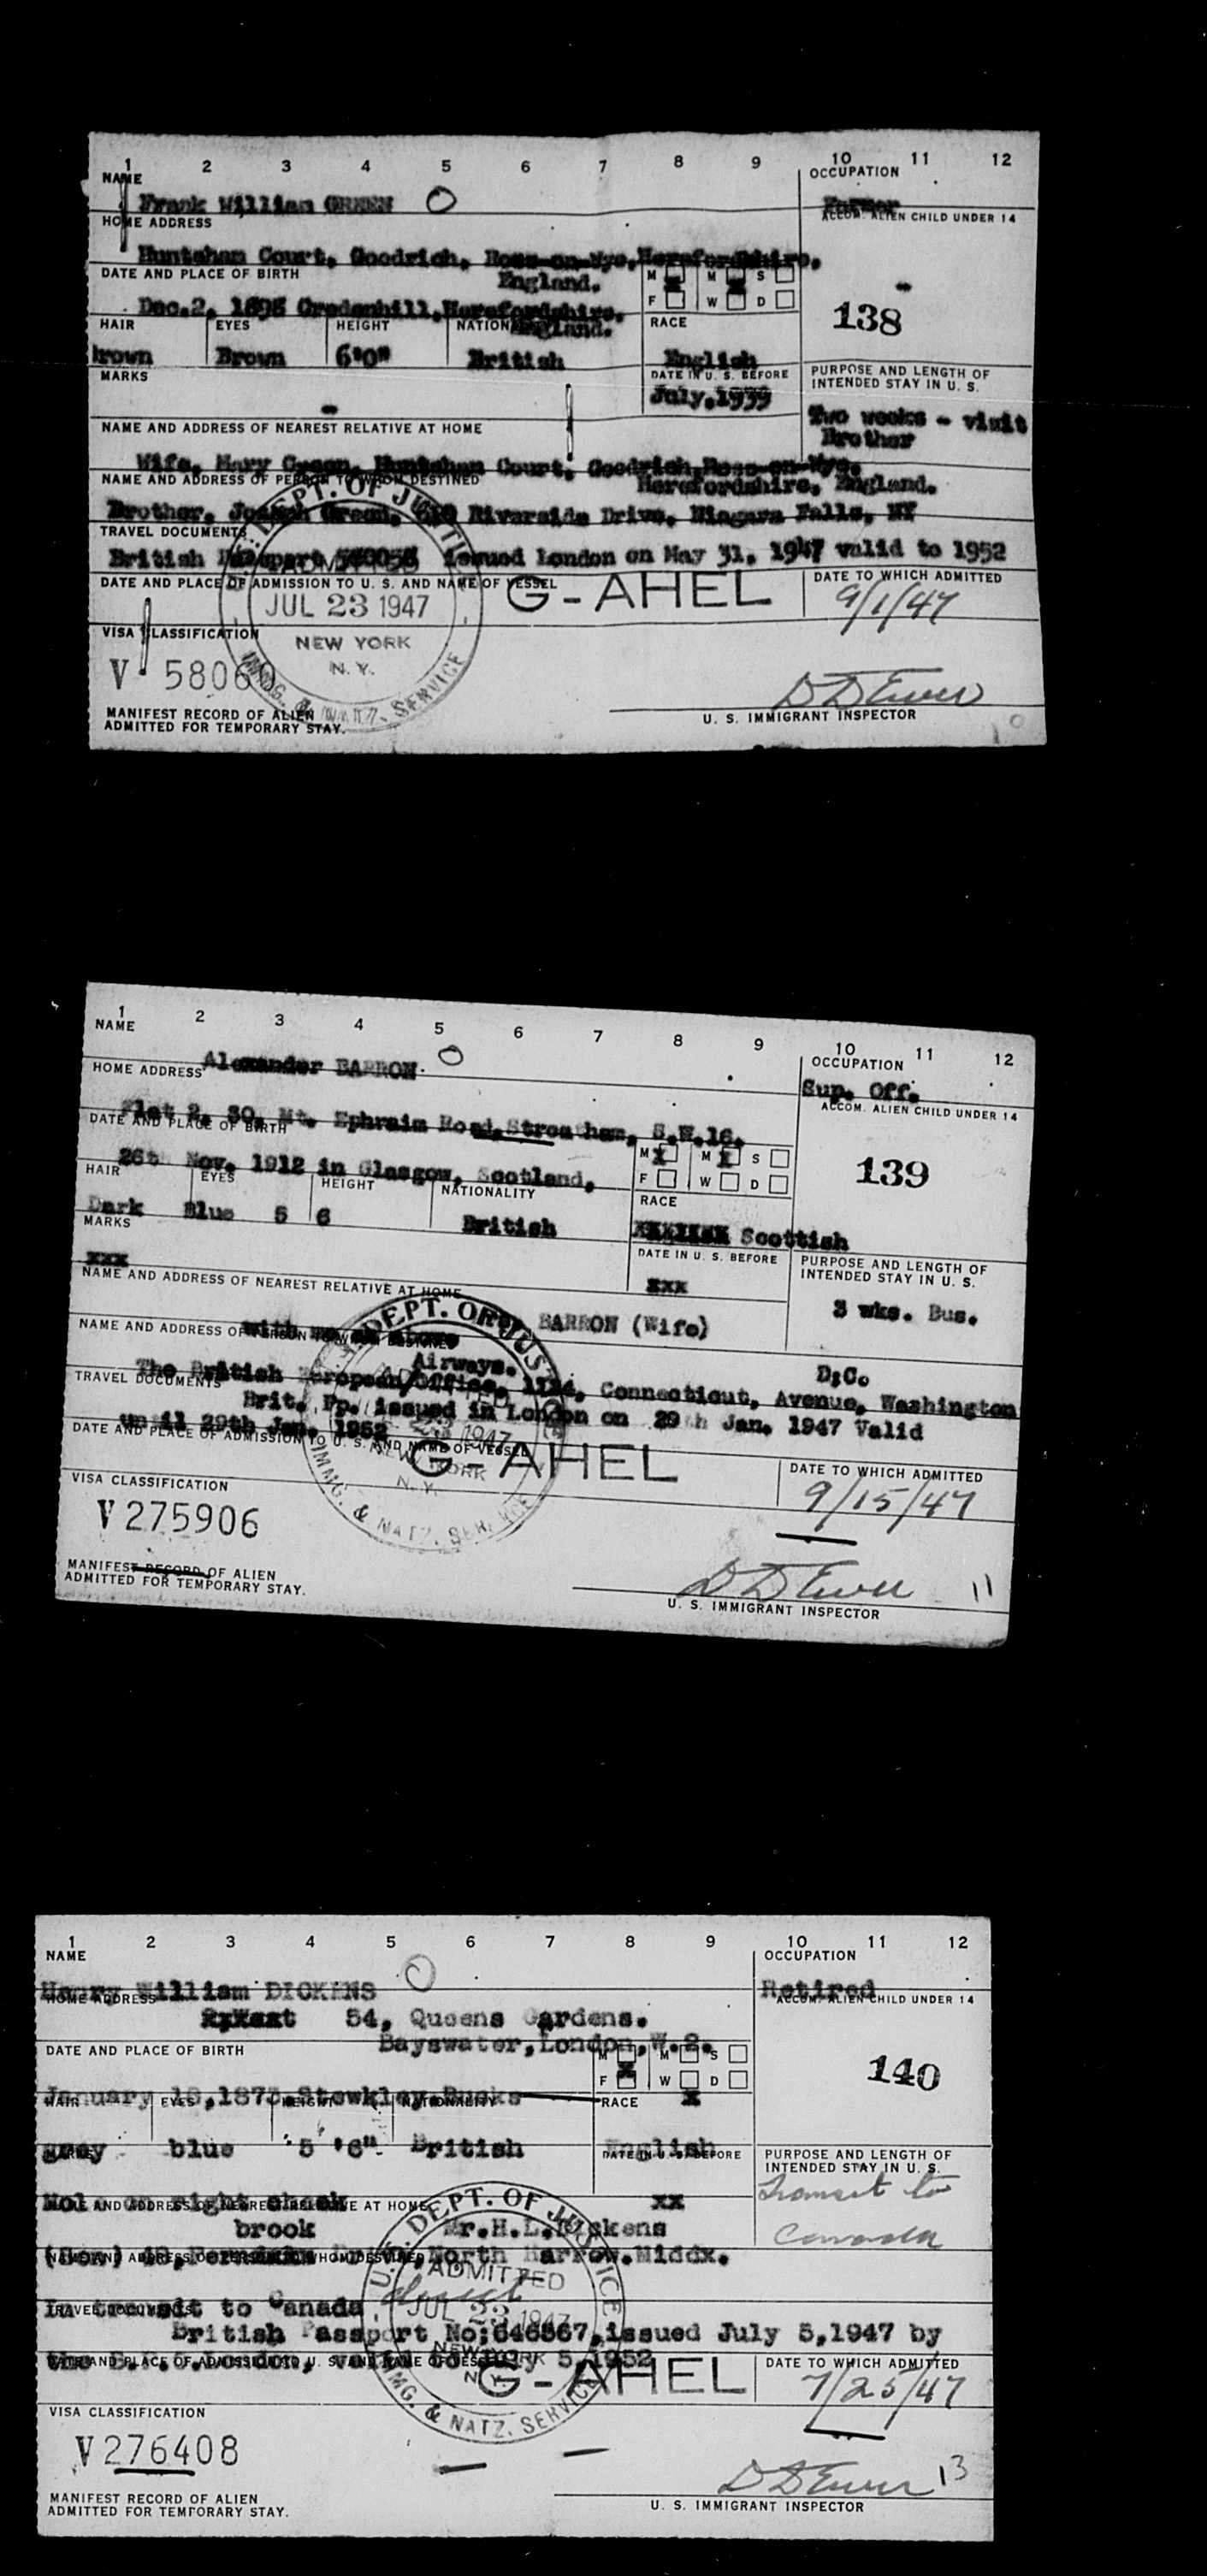 1 2 3 4 5 6 7 8 9 10 11 12
NAME
OCCUPATION
Frank William GREEN
Farmer
HOME ADDRESS
ACCOM. ALIEN CHILD UNDER 14
Huntsham Court, Goodrich, Ross-on-Wye, Herefordshire,
England.
DATE AND PLACE OF BIRTH
M M S
F W D
138
Dec.2, Credenhill, Herefordshire,
England.
HAIR EYES HEIGHT NATIONALITY RACE
brown Brown 6'0" British English
MARKS
DATE IN U. S. BEFORE
July, 1939
PURPOSE AND LENGTH OF
INTENDED STAY IN U. S.
Two weeks - visit
Brother
NAME AND ADDRESS OF NEAREST RELATIVE AT HOME
Wife, Mary Green, Huntsham Court, Goodrich, Ross-on-Wye,
Herefordshire, England.
NAME AND ADDRESS OF PERSON TO WHOM DESTINED
Brother, Joseph Green, Riverside Drive, Niagara Falls, NY
TRAVEL DOCUMENTS
British Passport issued London on May 31, 1947 valid to 1952
DATE AND PLACE OF ADMISSION TO U. S. AND NAME OF VESSEL
DATE TO WHICH ADMITTED
DEPT. OF JUSTICE
ADMITTED
JUL 23 1947
NEW YORK
N. Y.
IMMG. & NATZ. SERVICE
G-AHEL
9/1/47
VISA CLASSIFICATION
V 58060
D D Ewer
MANIFEST RECORD OF ALIEN
ADMITTED FOR TEMPORARY STAY.
U. S. IMMIGRANT INSPECTOR
10
1 2 3 4 5 6 7 8 9 10 11 12
NAME
OCCUPATION
Alexander BARRON.
Sup. Off.
HOME ADDRESS
ACCOM. ALIEN CHILD UNDER 14
Flat 2, 30, Mt. Ephraim Road, Streatham, S.W.16.
DATE AND PLACE OF BIRTH
M M S
F W D
139
26th Nov. 1912 in Glasgow, Scotland.
HAIR EYES HEIGHT NATIONALITY RACE
Dark Blue 5 6 British Scottish
MARKS
xxx
DATE IN U. S. BEFORE
xxx
PURPOSE AND LENGTH OF
INTENDED STAY IN U. S.
3 wks. Bus.
NAME AND ADDRESS OF NEAREST RELATIVE AT HOME
BARRON (Wife)
with me as above
NAME AND ADDRESS OF PERSON TO WHOM DESTINED
Airways.
D;C.
The British European/Office, 1124, Connecticut, Avenue, Washington
TRAVEL DOCUMENTS
Brit. Pp. issued in London on 29th Jan. 1947 Valid
until 29th Jan. 1952
DATE AND PLACE OF ADMISSION TO U. S. AND NAME OF VESSEL
DATE TO WHICH ADMITTED
DEPT. OF JUSTICE
1947
NEW YORK
N. Y.
IMMG. & NATZ. SERVICE
G-AHEL
9/15/47
VISA CLASSIFICATION
V275906
D D Ewer
11
MANIFEST RECORD OF ALIEN
ADMITTED FOR TEMPORARY STAY.
U. S. IMMIGRANT INSPECTOR
1 2 3 4 5 6 7 8 9 10 11 12
NAME
OCCUPATION
Henry William DICKENS
Retired
HOME ADDRESS
ACCOM. ALIEN CHILD UNDER 14
54, Queens Gardens.
Bayswater, London, W.2.
DATE AND PLACE OF BIRTH
M M S
F W D
140
January Stewkley, Bucks
HAIR EYES HEIGHT NATIONALITY RACE
grey blue 5'6" British English
DATE IN U. S. BEFORE
PURPOSE AND LENGTH OF
INTENDED STAY IN U. S.
Transit to
Canada
Mole on right cheek
xx
NAME AND ADDRESS OF NEAREST RELATIVE AT HOME
brook Mr.H.L.Dickens
(Son) North Harrow.Middx.
NAME AND ADDRESS OF PERSON TO WHOM DESTINED
In transit to Canada
TRAVEL DOCUMENTS
British Passport No; 646567, issued July 5,1947 by
the London, valid to July 5,1952
DATE AND PLACE OF ADMISSION TO U. S. AND NAME OF VESSEL
DATE TO WHICH ADMITTED
U. S. DEPT. OF JUSTICE
ADMITTED
JUL 23 1947
NEW YORK
N. Y.
IMMG. & NATZ. SERVICE
G-AHEL
7/25/47
VISA CLASSIFICATION
V276408
D D Ewer
13
MANIFEST RECORD OF ALIEN
ADMITTED FOR TEMPORARY STAY.
U. S. IMMIGRANT INSPECTOR